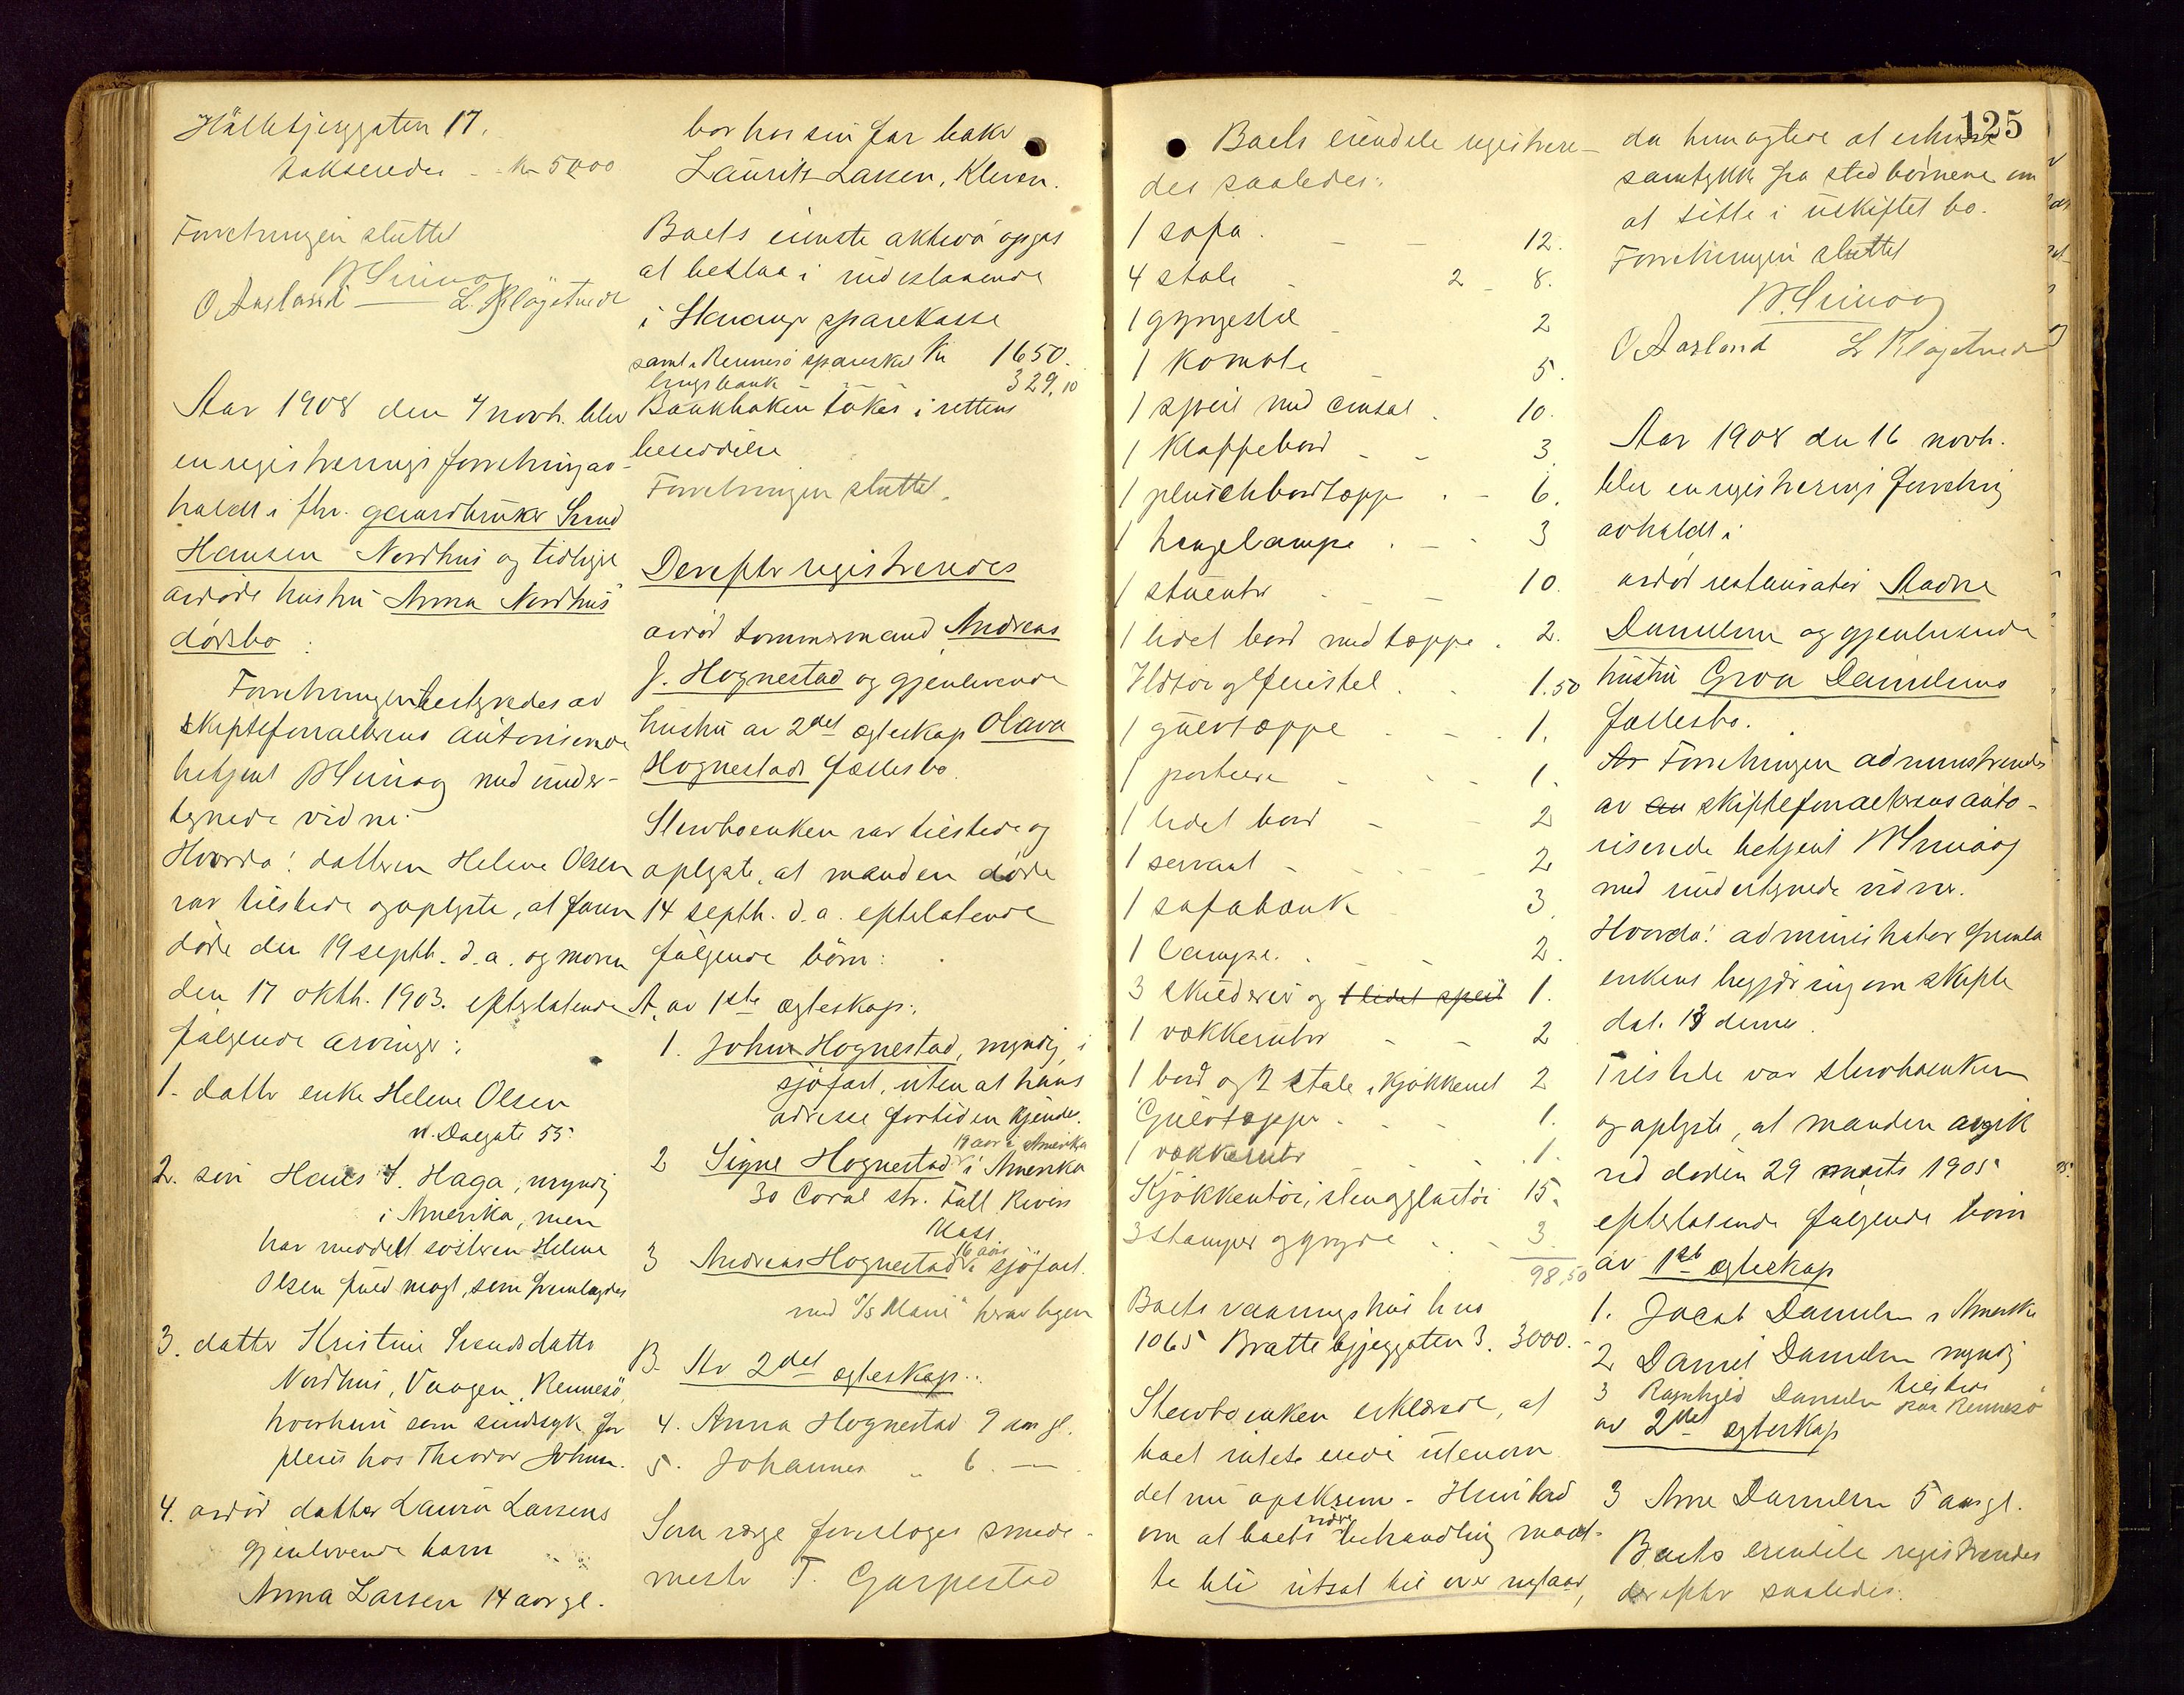 Hállebjerggaten 17.
takseredes - - kr 5000
Forretningen sluttet
O. Aasland L. Kløgetvedt
Aar 1908 den 7 novb. blev
en registreringsforretning av-
holdt i fhv. gaardbruker Svend
Hansen Nordhus og tidligere
avdøde hustru Anna Nordhus
dødsbo:
Forretningen bestyredes av
skifteforvalterens autoriserede
betjent med under-
tegnede vidne.
Hvorda! datteren Helene Olsen
var tilstede og oplyste, at faren
døde den 19 septb. d.a. og moren
den 17 oktb. 1903. efterlatende
følgende arvinger:
1. datter enke Helene Olsen
n. Dalgate 55.
2. søn Hans S. Haga, myndig
i Amerika, men
har meddelt søsteren Helene
Olsen fuldmagt, som fremlagdes
3. datter Kristine Svendsdatter
Nordhus, Vaagen, Rennesø,
hvorhun som sindssyk for
pleies hos Theodor Johnsen.
4. avdød datter Laura Larsens
gjenlevende barn
Anna Larsen 14 aar gl.
bor hos sin far baker
Laurits Larsen, Kleven.
Boets eneste aktiva opgas
at bestaa i indestaaende
i Stavanger sparekasse
samt i Rennesø spareskil Kr 1650.
lingsbank - - 329,10
Bankboken tokes i rettens
besiddelse
Forretningen sluttet.
Derefter registreredes
avdød tommermand Andreas
J. Hognestad og gjenlevende
hustru av 2det egteskap Olava
Hognestads fællesbo.
Stervboenken var tilstede og
oplyste, at manden døde
14 septb. d.a. efterlatende
følgende børn:
A. av 1ste egteskap:
1. John Hognestad, myndig, i
sjøfart, uten at hans
adresse fortiden kjendes.
19 aar i Amerika
2 Signe Hognestad i Amerika
30 Coral str. Fall Rivers
Mass
16 aar
3 Andreas Hognestad i sjøfart
med S/S "Marie" herav byen
B. Av 2det egteskap..
4. Anna Hognestad 9 aar gl.
5. Johannes " 6 —
Som verge foresloges smede-
mester T. Garpestad
125
Boets eiendele registrere-
des saaledes:
1 sofa - - 12.
4 stole - 2 - 8.
1 gyngestol - 2
1 komode - 5.
1 speil med consol - 10.
1 klappebord - - 3.
1 pluschbordteppe - - 6.
1 hengelampe - - 3
1 stueuhr - - 10.
1 lidet bord med teppe . 2.
Ildtøi og fuistel - - 1.50
1 gulvteppe - - 1.
1 portiere - - 1.
1 lidet bord - - 2
1 servant - - - 2
1 sofabænk 3.
1 lampe. - - 2.
3 skilderier og 1 lidet speil 1.
1 vækkeruhr - - 2
1 bord og 2 stole i kjøkkenet 2
Gulvtepper - - 1.
1 vækkeruhr - - 1.
Kjøkkentøi, stengglastøi 15.
3 stamper og gryde - - 3.
98,50
Boets vaaningshus hus
1065 Brattebjerggaten 3. 3000.-
Stervboenken erklærede, at
boet intet eiede utenom
det nu opskrevne. Hun bad
om at boets videre behandling maat-
te bli utsat til over nytaar,
da hun agtede at erhverve
samtykke fra stedbørnene om
at sitte i uskiftet bo.
Forretningen sluttet
O. Aasland L. Kløgetvedt
Aar 1908 den 16 novb.
blev en registreringsforretning
avholdt i
avdød restauratør Aadne
Danielsen og gjenlevende
hustru Groa Danielsens
fællesbo.
Av Forretningen administreredes
av en skifteforvalterens auto-
riserede betjent
med undertegnede vidner.
Hvorda! administrator fremla
enkens begjæring om skifte
dat. 13 dennes.
Tilstede var stervboenken
og oplyste, at manden avgik
ved døden 29 marts 1905
efterlatende følgende børn
av 1ste egteskap
1. Jacob Danielsen i Amerika
2 Daniel Danielsen myndig
tilstede
3 Ragnhild Danielsen paa Rennesø
av 2det egteskap
3 Arne Danielsen 5 aar gl.
Boets eiendele registreredes
derefter saaledes: